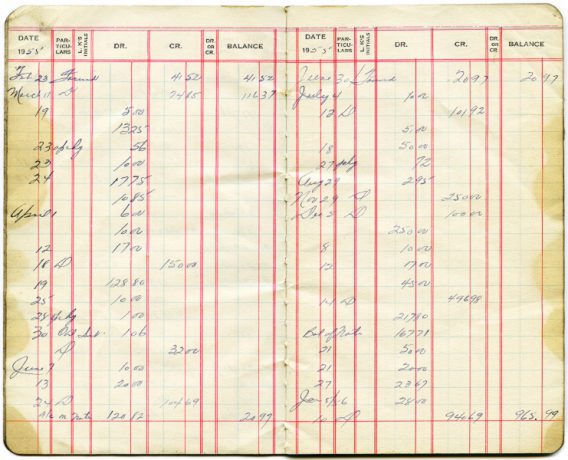 DATE PAR-TICU-LARS L. K'S INITIALS DR. CR. DR. OR CR. BALANCE
1955
Feb 23 Forward 41 52 41 52
March 11 D 74 85 116 37
19 5 00
13 25
23 56
23 10 00
24 17 75
10 85
April 1 6 00
10 00
12 17 00
18 D 150 00
19 128 80
25 10 00
28 1 00
30 1 06
D 32 00
June 7 10 00
13 20 00
24 D 104 69
A/c m note 120 82 20 97
DATE PAR-TICU-LARS L. K'S INITIALS DR. CR. DR. OR CR. BALANCE
1955
June 30 Forward 20 97 20 97
July 4 10 00
12 D 101 92
5 00
18 50 00
27 72
Aug 29 2 95
Nov 29 D 250 00
Dec 5 D 100 00
250 00
8 10 00
12 17 00
45 00
D 496 98
217 80
Bal of Note 167 71
21 50 00
21 20 00
27 23 67
Jan 28 00
10 D 946 9 968. 99